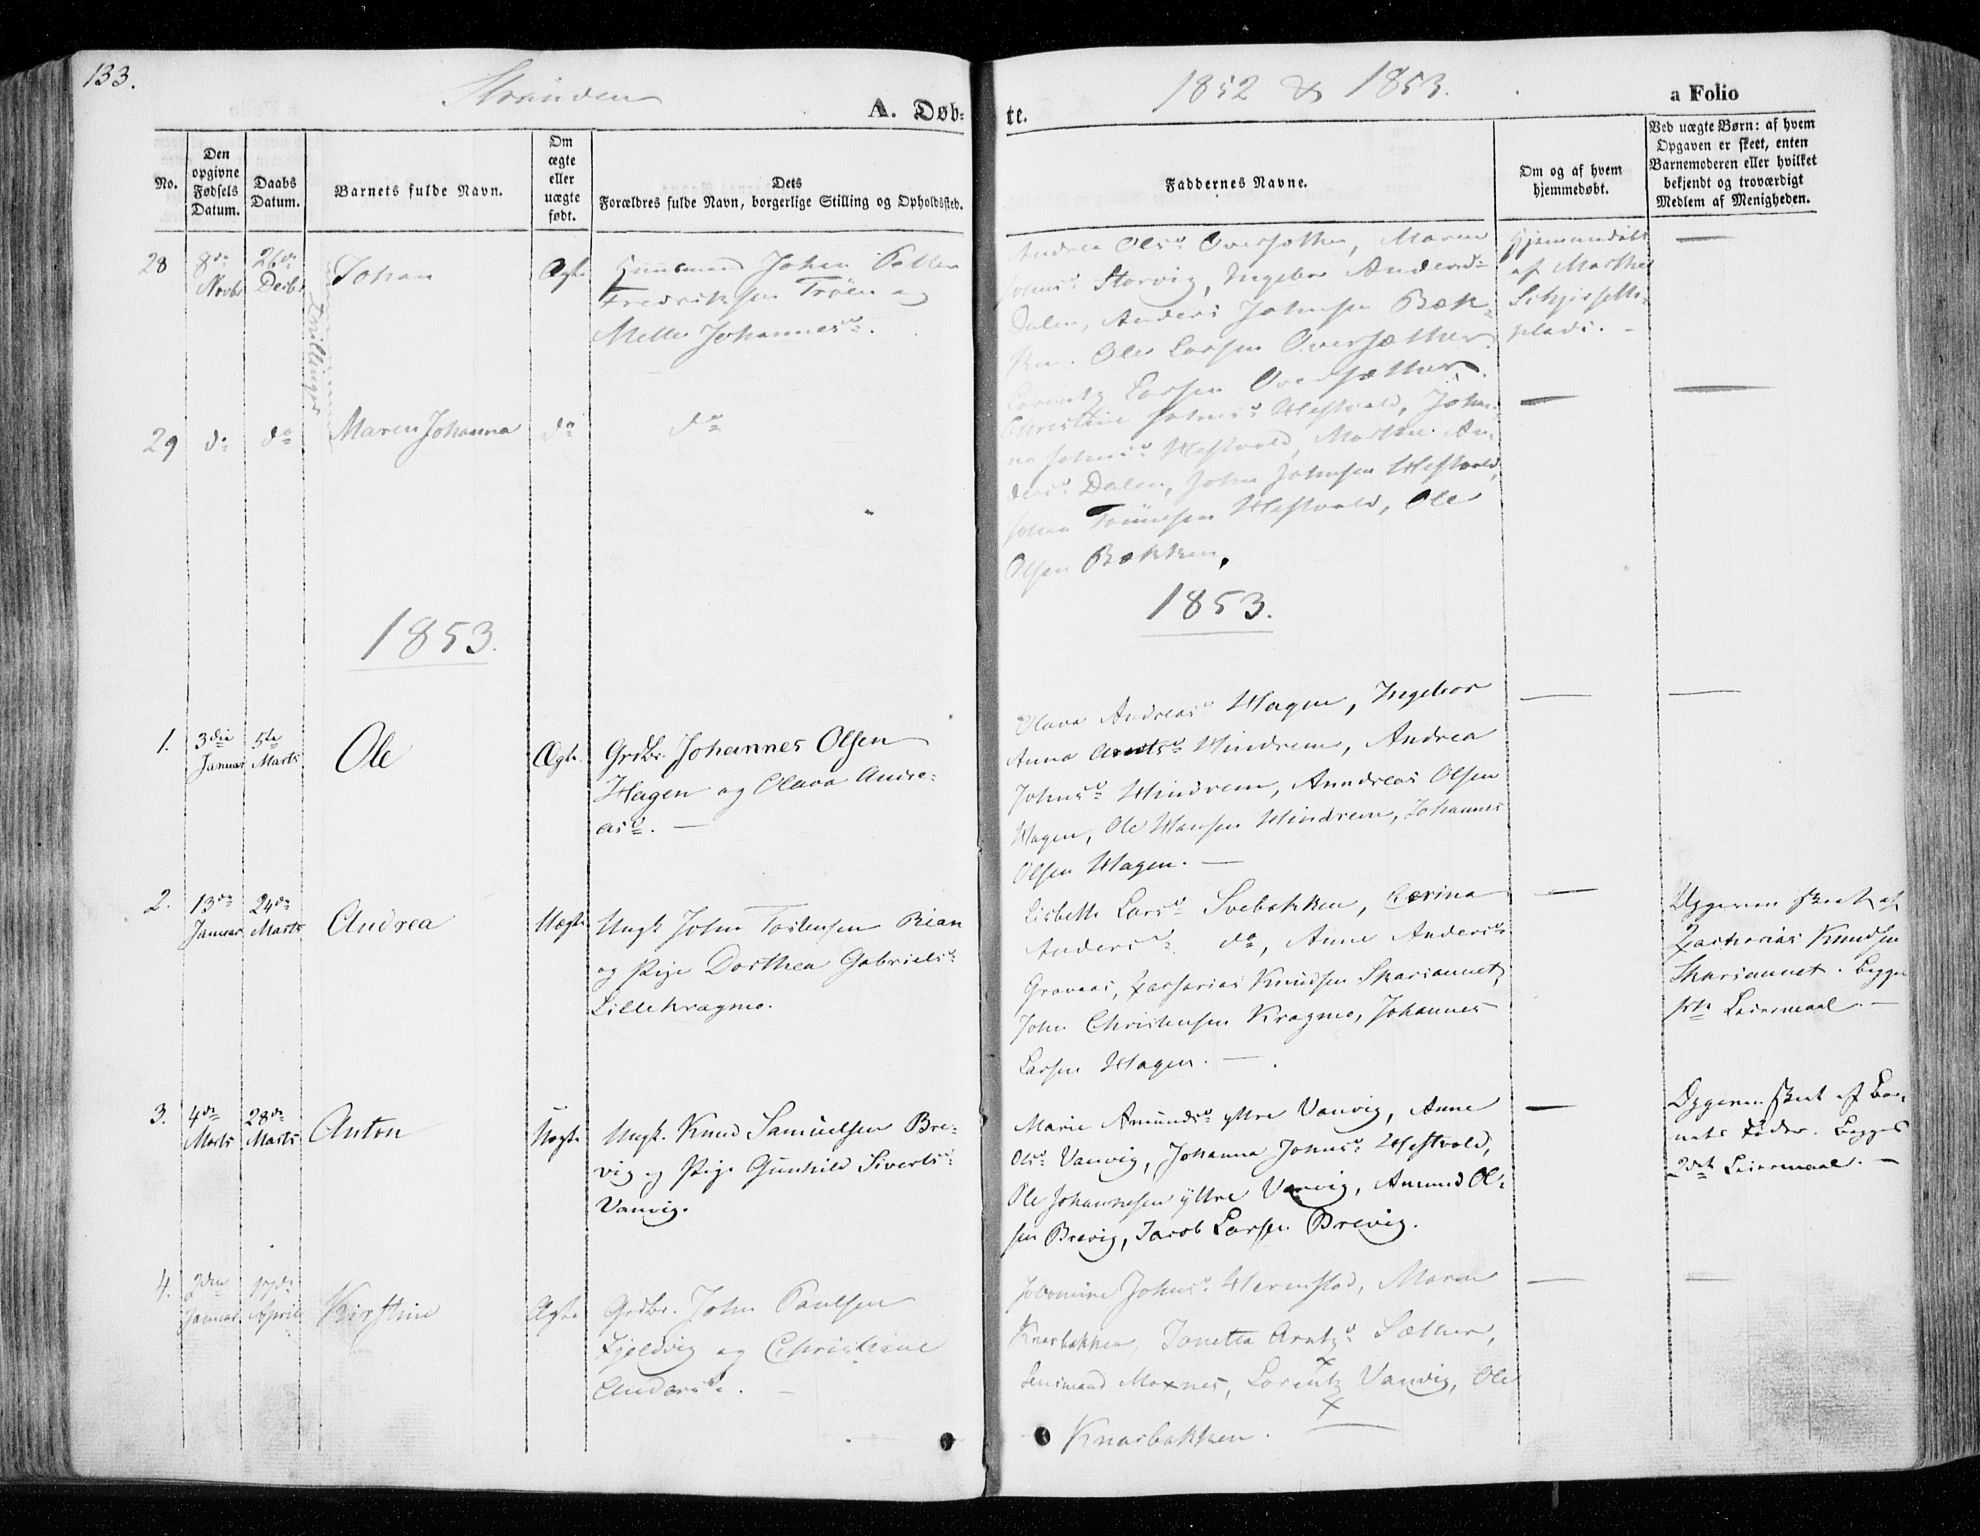 133.
Stranden
A. Døb-
te.
1852 & 1853.
a Folio
No.
Den opgivne Fødsels Datum.
Daabs Datum.
Barnets fulde Navn.
Om ægte eller uægte født.
Dets
Forældres fulde Navn, borgerlige Stilling og Opholdssted.
Faddernes Navne.
Om og af hvem hjemmedøbt.
Ved uægte Børn: af hvem Opgaven er skeet, enten Barnemoderen eller hvilket bekjendt og troværdigt Medlem af Menigheden.
28
8de Novbr
26de Decbr
Johan
Tvillinger
Ægte
Huusmand Johan Petter
Fredriksen Trøen og
Mette Johannesd.
Andrea Olsd. Oversæther, Maren
Johnsd. Storvig, Ingebor Andersd.
Dalen, Anders Johnsen Bæk-
ken. Ole Larsen Oversæther
Lorentz Larsen Oversæther.
Hjemmedøbt
af Marthe
plads. -
—
29
do
do
Maren Johanna
do
do
Christine Johnsd. Hestvold, Johan-
na Johnsd. Hestvold, Marthe An-
dersd. Dalen, John Johnsen Hestvold,
Johan Hestvold, Ole
Olsen Bækken.
—
—
1853.
1853.
1.
3die Januar
5te Marts
Ole
Ægte
Grdbr. Johannes Olsen
Hagen og Olava Andre-
asd. —
Olava Andreasd. Hagen, Ingebor
Anna Arntsd. Hindrem, Andrea
Johnsd. Hindrem, Anndreas Olsen
Hagen, Ole Hansen Hindrem, Johannes
Olsen Hagen. —
—
—
2.
13de Januar
24de Marts
Andrea
Uægte
Ungk. John Tostensen Rian
og Pige Dorthea Gabrielsd.
Lillekragmo.
Lisbeth Larsd. Svebakken, Carina
Andersd. do, Anne Andersd.
Gravaas, Zacharias Knudsen Skarsaunet,
John Christensen Kragmo, Johannes
Larsen Hagen. —
—
Opgaven skeet af
Zacharias Knudsen
Skarsaunet. Begges
1ste Leiermaal. —
3.
4de Marts
28de Marts
Anton
Uægte
Ungk. Knud Samuelsen Bre-
vig og Pige Gunhild Sivertsd.
Vanvig.
Marie Amundsd. yttre Vanvig, Anne
Olsd. Vanvig, Johanna Johnsd. Hestvold,
Ole Johannesen yttre Vanvig, Amund Ol-
sen Brevig, Jacob Larsen Brevig.
—
Opgaven skeet af Bar-
nets Fader. Begges
2det Leiermaal. —
4.
2den Januar
17de April
Kirstine
Ægte
Grdbr. John Paulsen
Fjeldvig og Christiane
Andersd. —
Johnsd. Herenstad, Maren
Knarbakken, Jonetta Arntzd. Sæther,
Lensmand Moxnes, Lorentz Vanvig, Ole
Knarbakken.
—
—